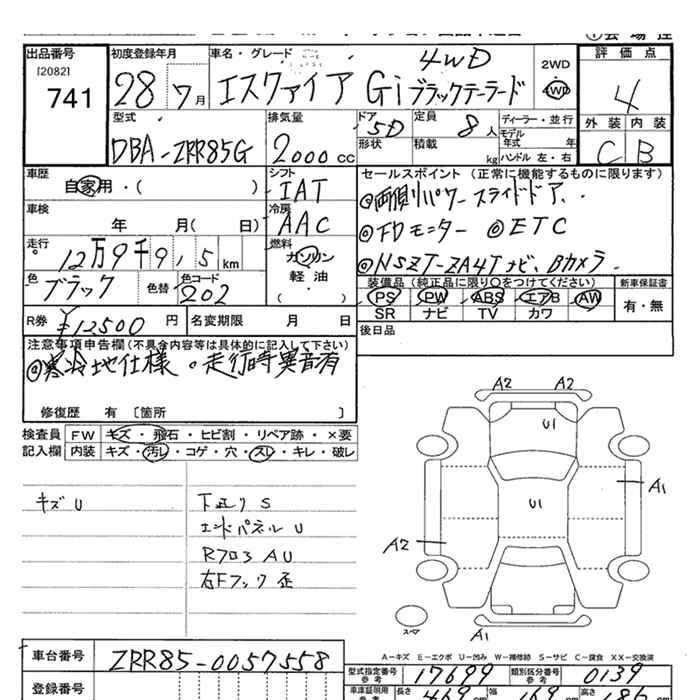 出品番号 初度登録年月 車名・グレード 4WD 2WD 評価点
[2082]
741 28 7月 エスクァイア Gi ブラックテーラード 4WD 4
型式 排気量 ドア 5D 定員 8人 ディーラー・並行 外装 内装
DBA-ZRR85G 2000cc 形状 積載 kg モデル年式 年式 ハンドル 左・右 C B
車歴 シフト セールスポイント(正常に機能するものに限ります)
自家用・( ) IAT ◎両側パワースライドドア、
車検 年 月( 日) 冷房 AAC ◎FDモニター ◎ETC
走行 12万9千9 1 5 km 燃料 ガソリン 軽・油 ( ) ◎NSZT-ZA4Tナビ、Bカメラ
色 ブラック 色替 色コード 202 装備品(純正品に限り○をつけてください) 新車保証書
PS PW ABS エアB AW 有・無
SR ナビ TV カワ
R券 ¥12500 円 名変期限 月 日 後日品
注意事項申告欄(不具合内容等は具体的に記入して下さい)
◎寒冷地仕様 。走行時異音有
修復歴 有 〔箇所 〕
検査員 FW キズ・飛石・ヒビ割・リペア跡・×要
記入欄 内装 キズ・汚レ・コゲ・穴・スレ・キレ・破レ
キズ U 下廻り S
エンドパネル U
Rフロア A U
右Fフック 歪
A2 A2
U1
A1
U1
A2
スペア
A1
A-キズ E-エクボ U-凹み W-補修跡 S-サビ C-腐食 XX-交換済
車台番号 ZRR85-0057558 型式指定番号 参考 17699 類別区分番号 参考 0139
登録番号 車庫証明用 参考 長さ 469 cm 幅 169 cm 高さ 186 cm